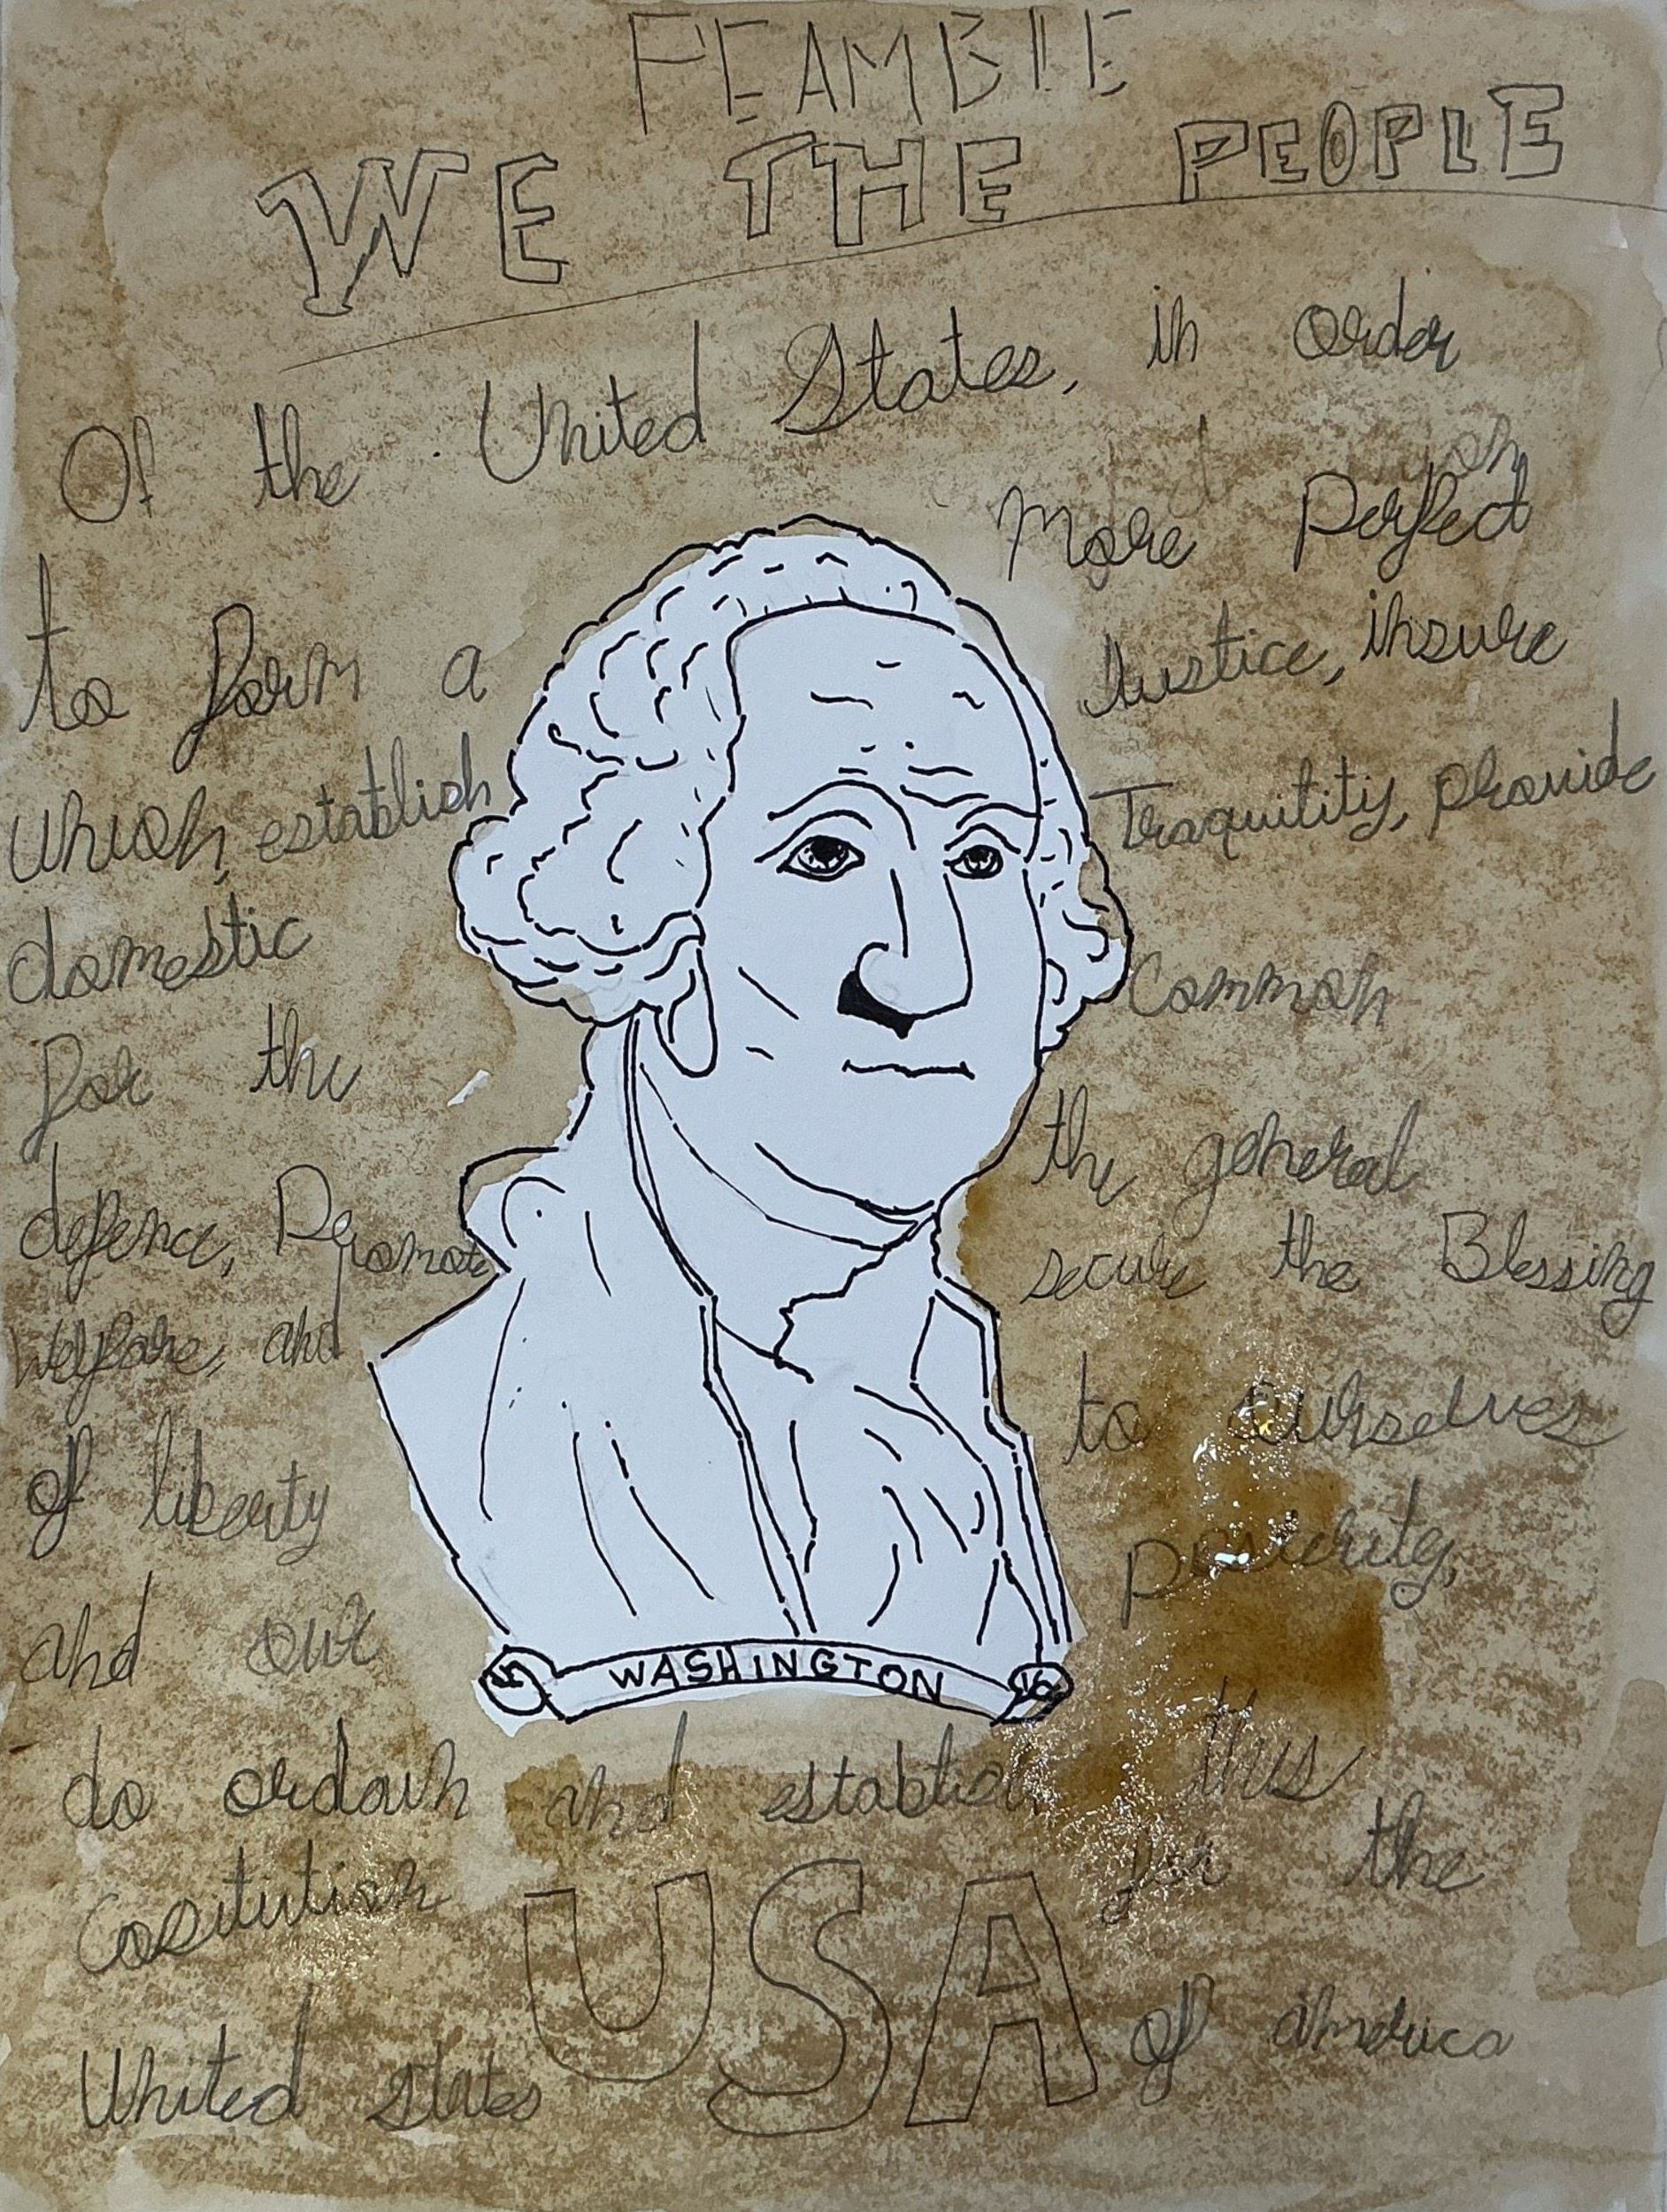 PEAMBLE
WE THE PEOPLE
Of the United States, in order
to form a More Perfect
Which, establish Justice, insure
domestic Traquility, provide
for the Common
defence, Promote the general
Welfare, and secure the Blessing
of liberty to ourselves
and our
do ordain and establish this
Cositution for the
United States of America
USA
WASHINGTON